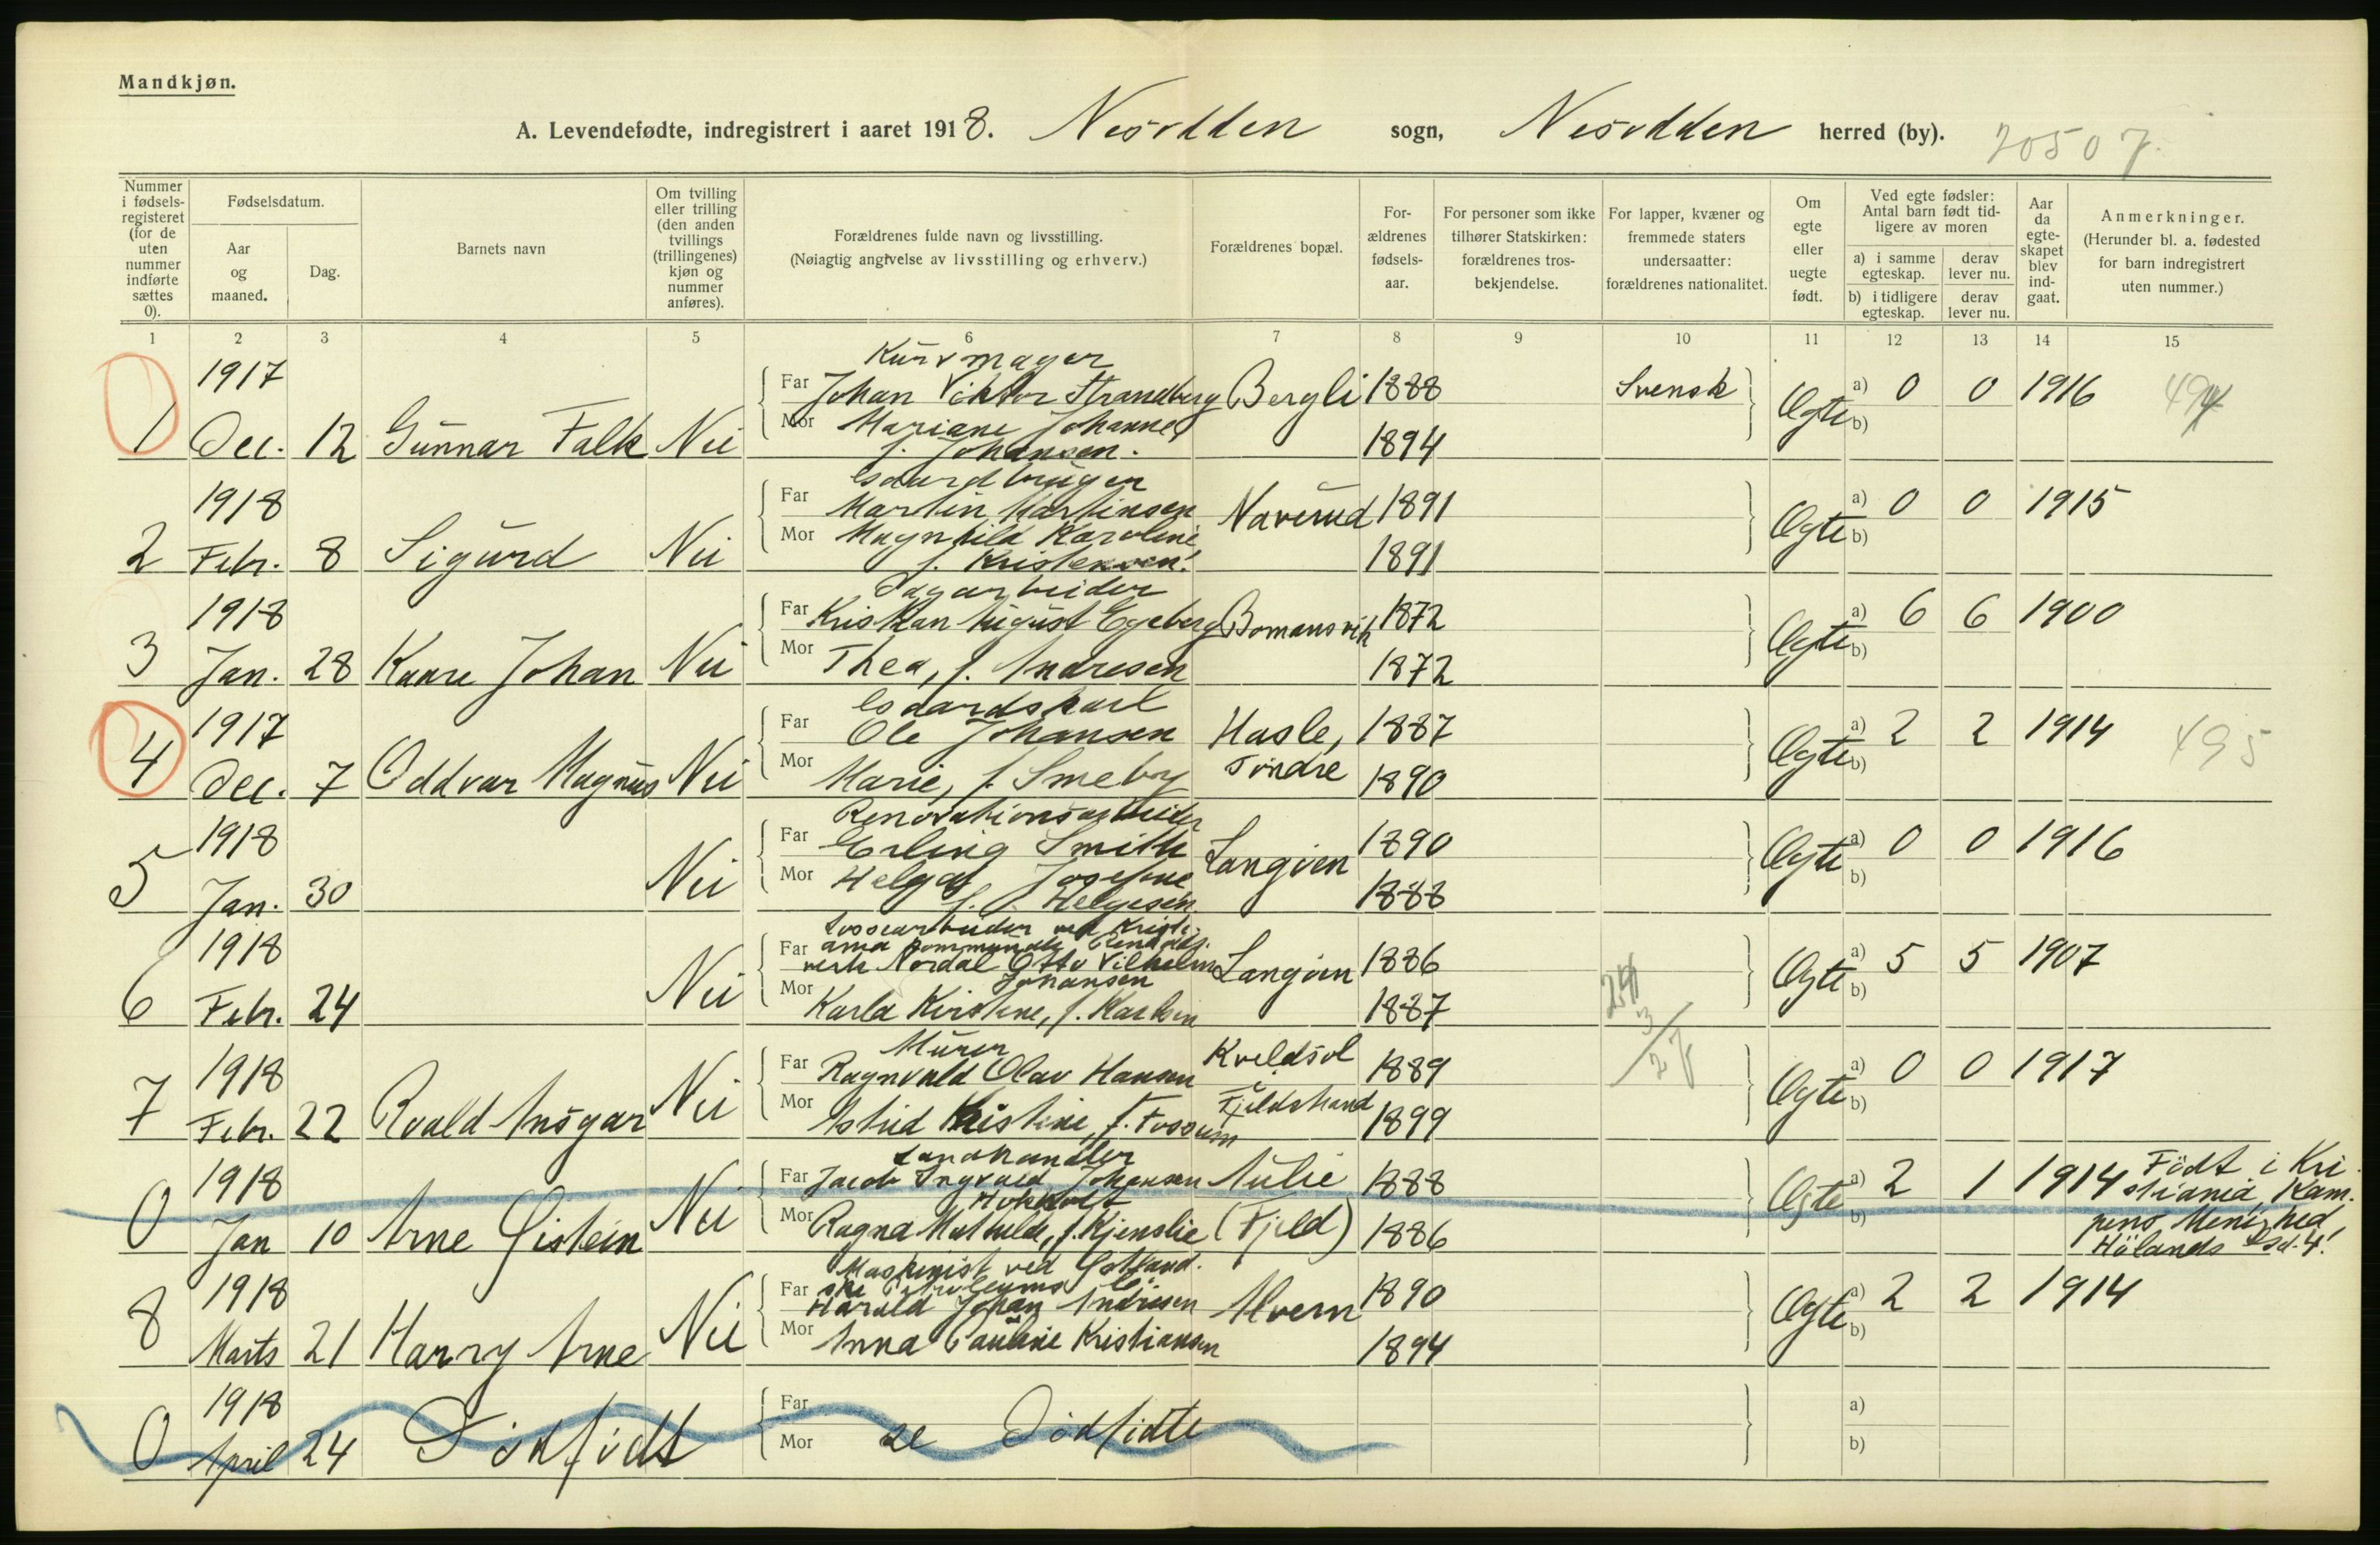 Mandkjøn.
A. Levendefødte, indregistrert i aaret 1918. Nesodden sogn, Nesodden herred (by). 20507.
Nummer i fødsels-registeret (for de uten nummer indførte sættes 0).
Fødselsdatum.
Aar og maaned.
Dag.
Barnets navn
Om tvilling eller trilling (den anden tvillings (trillingenes) kjøn og nummer anføres).
Forældrenes fulde navn og livsstilling.
(Nøiagtig angivelse av livsstilling og erhverv.)
Forældrenes bopæl.
For-ældrenes fødsels-aar.
For personer som ikke tilhører Statskirken: forældrenes tros-bekjendelse.
For lapper, kvæner og fremmede staters undersaatter: forældrenes nationalitet.
Om egte eller uegte født.
Ved egte fødsler: Antal barn født tid-ligere av moren
a) i samme egteskap.
derav lever nu.
b) i tidligere egteskap.
derav lever nu.
Aar da egte-skapet blev ind-gaat.
Anmerkninger.
(Herunder bl. a. fødested for barn indregistrert uten nummer.)
1 2 3 4 5 6 7 8 9 10 11 12 13 14 15
Kurvmager
1917 Far Johan Viktor Strandberg Bergli 1888 Svensk Ægte a) 0 0 1916 494
1 Dec. 12 Gunnar Falk Nei Mor Mariane Johanne 1894 b)
f. Johansen.
Gaardbruger
1918 Far Martin Martinsen Naverud 1891 Ægte a) 0 0 1915
2 Febr. 8 Sigurd Nei Mor Magnhild Karoline 1891 b)
f. Kristensen.
Dagarbeider
1918 Far Kristian August Egeberg Bomansvik 1872 Ægte a) 6 6 1900
3 Jan. 28 Kaare Johan Nei Mor Thea, f. Andresen 1872 b)
Gaardskarl
1917 Far Ole Johansen Hasle, 1887 Ægte a) 2 2 1914 495
4 Dec. 7 Oddvar Magnus Nei Mor Marie, f. Smeby Søndre 1890 b)
Renovationsarbeider
1918 Far Erling Smith Langøen 1890 Ægte a) 0 0 1916
5 Jan. 30 Nei Mor Helga Josefine 1888 b)
f. Helgesen
Lossearbeider ved Kristi-
1918 Far ania kommunale Renholds.
verk Nordal Otto Vilhelm Langøen 1886 Ægte a) 5 5 1907
Johansen
6 Febr. 24 Nei Mor Karla Kirstine, f. Karlsen 1887 b)
Murer
1918 Far Ragnvald Olav Hansen Kveldsol 1889 Ægte a) 0 0 1917
7 Febr. 22 Roald Ansgar Nei Mor Astrid Kristine, f. Fossum Fjeldstrand 1899 b)
Landhandler
1918 Far Jacob Ingvald Johansen Aulie 1888 Ægte a) 2 1 1914 Født i Kri-
stiania, Kam-
0 Jan 10 Arne Øistein Nei Mor Ragna Mathilde, f. Kjenslie (Fjeld) 1886 b) pens Menighed,
Hølands Gd. 4.
Maskinist ved Østland-
1918 Far ske Petroleums Co.
Harald Johan Andresen Alvern 1890 Ægte a) 2 2 1914
8 Marts 21 Harry Arne Nei Mor Anna Pauline Kristiansen 1894 b)
1918 Far a)
0 April 24 Dødfødt Mor se Dødfødte b)